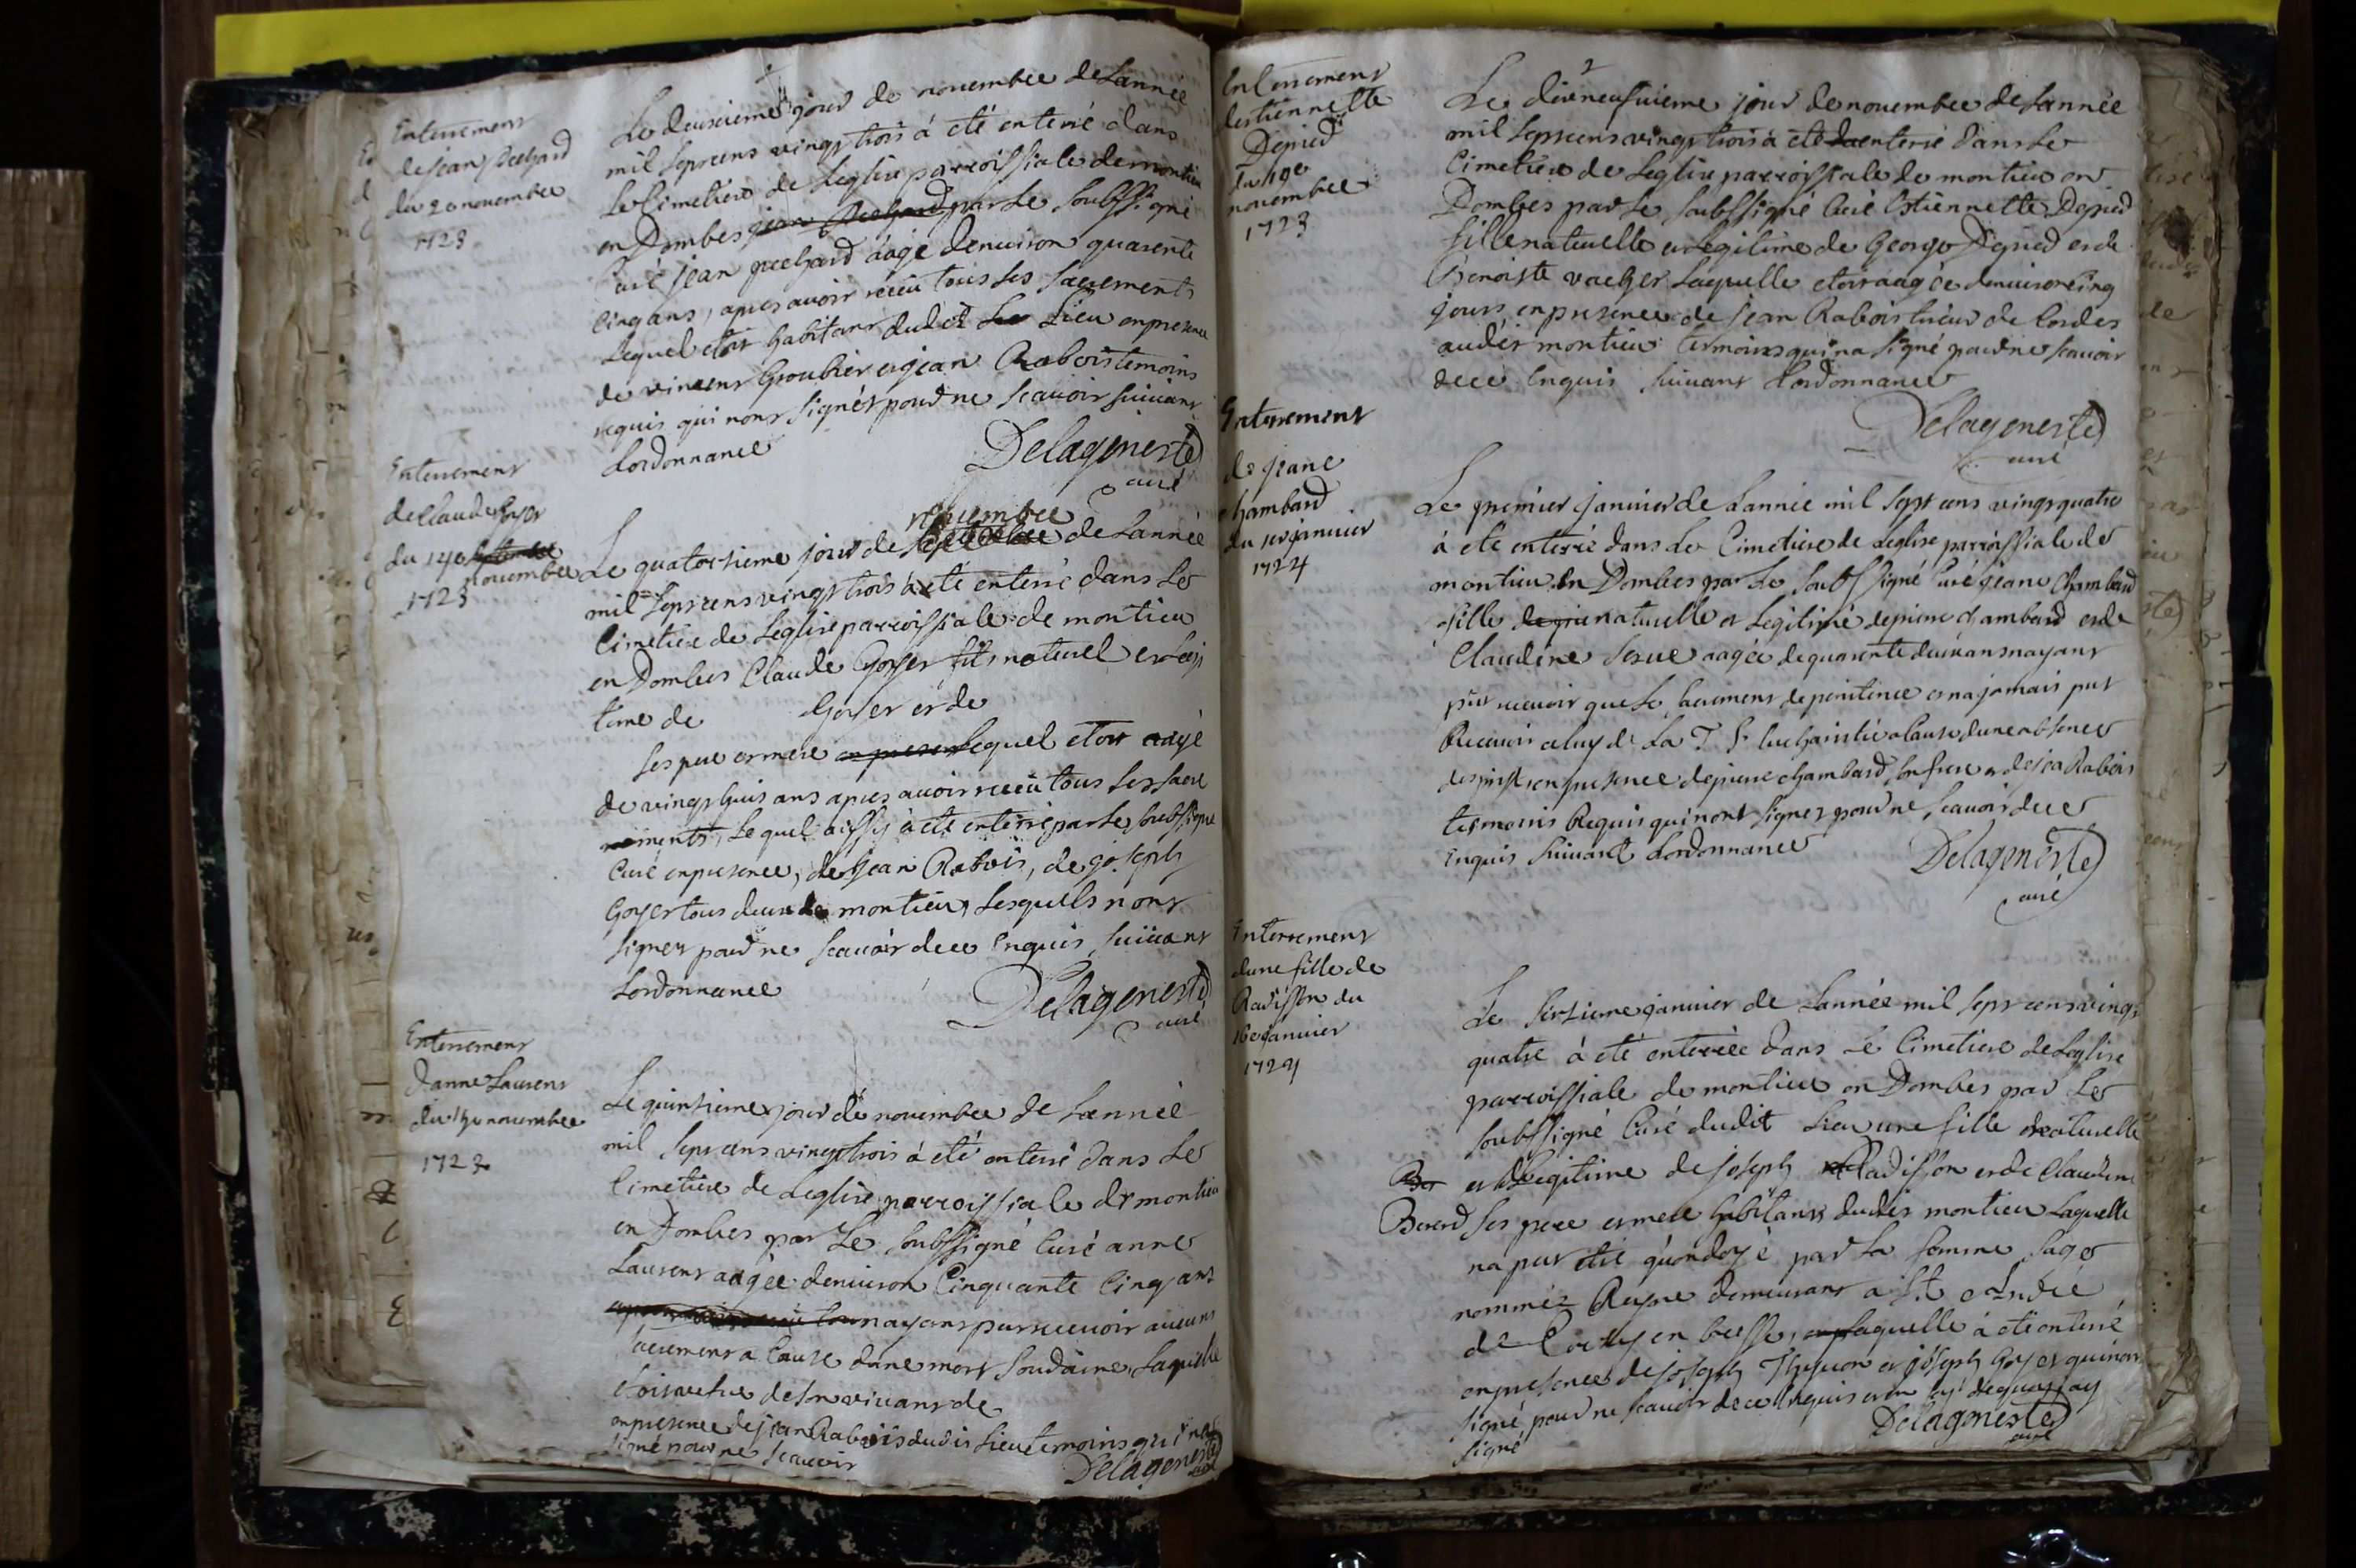 Enterrement
de jean pechard
du 2e novembre
1723
Le deuxieme jour de novembre de Lannée
mil sepcens vingt trois à eté enterré dans
Le Cimetiere de Leglise parroissiale de montieu
en Dombes jean pechard par Le soubssigné
curé jean pechard aagé denviron quarente
cinq ans, apres avoir receu tous les sacrements
Lequel etoit habitant dudit Lieu en presence
de vincent Groubier et jean Rabois temoins
requis qui nont signés pour ne scavoir suivant
Lordonnance
Delageneste
curé
Enterrement
de Claude Goyer
du 14e septembre
novembre
1723
novembre
Le quatorzieme jour de septembre de Lannée
mil sepcens vingt trois à eté enterré dans Le
Cimetiere de Leglise parroissiale de montieu
en Dombes Claude Goyer fils naturel et Legi
time de Goyer et de
ses pere et mere en presen Lequel etoit aagé
de vingt huit ans apres avoir receu tous les sacre
ments, Lequel à eté enterré par Le soubsigné
Curé en presence, de jean Rabois, de joseph
Goyer tous deux de montieu, Lesquells n'ont
signez pour ne scavoir de ce Enquis suivant
Lordonnance
Delageneste
curé
Enterrement
danne Laurent
du 15e novembre
1723
Le quinzieme jour de novembre de Lannée
mil sepcens vingt trois à eté enterré dans Le
Cimetiere de Leglise parroissiale de montieu
en Dombes par Le soubssigné Curé anne
Laurent aagée denviron Cinquante Cinq ans
nayant pu recevoir aucuns
sacrement a Cause dune mort soudaine, Laquelle
etoit vefve de son vivant de
en presence de jean Rabois dudit Lieu temoins qui na
signé pour ne scavoir
Delageneste
curé
Enterrement
destiennette
Depied
du 19e
novembre
1723
2
Le dixneufvieme jour de novembre de Lannée
mil sepcens vingt trois à eté enterré dans Le
Cimetiere de Leglise parroissiale de montieu en
Dombes par Le soubssigné Curé Estiennette Depied
fille naturelle et Legitime de George Depied et de
Benoiste vacher Laquelle etoit aagée denviron cinq
jours en presence de jean Rabois de Cordes
audit montieu temoins qui na signé pour ne scavoir
de ce Enquis suivant Lordonnance
Delageneste
curé
Enterrement
de jeane
chambard
du 1er janvier
1724
Le premier janvier de Lannée mil sept cens vingt quatre
à eté enterré dans Le Cimetiere de Leglise parroissiale de
montieu En Dombes par Le soubssigné curé jeane Chambard
fille naturelle et Legitime de pierre chambard et de
Claudine aagée de quarente deux ans nayant
put recevoir que Le sacrement de penitence et na jamais put
Recevoir celuy de La T. S. Eucharistie a Cause dune absence
desprit en presence de pierre chambard son frere et de jean Rabois
tesmoins Requis qui nont signez pour ne scavoir de ce
Enquis suivant Lordonnance
Delageneste
curé
Enterrement
dune fille de
Radisson du
16e janvier
1724
Le seizieme janvier de Lannée mil sepcens vingt
quatre à eté enterrée dans Le Cimetiere de Leglise
parroissiale de montieu en Dombes par Le
soubssigné Curé dudit Lieu une fille naturelle
et Legitime de joseph Radisson et de Claudine
Bererd ses pere et mere habitants dudit montieu Laquelle
na put etre qu'ondoyé par La femme sage
nommée Reyne demeurant a St André
de Corcy en bresse, Laquelle à eté enterré
en presence de joseph et joseph Goyer qui nont
signé pour ne scavoir de ce Enquis
Delageneste
signé
curé